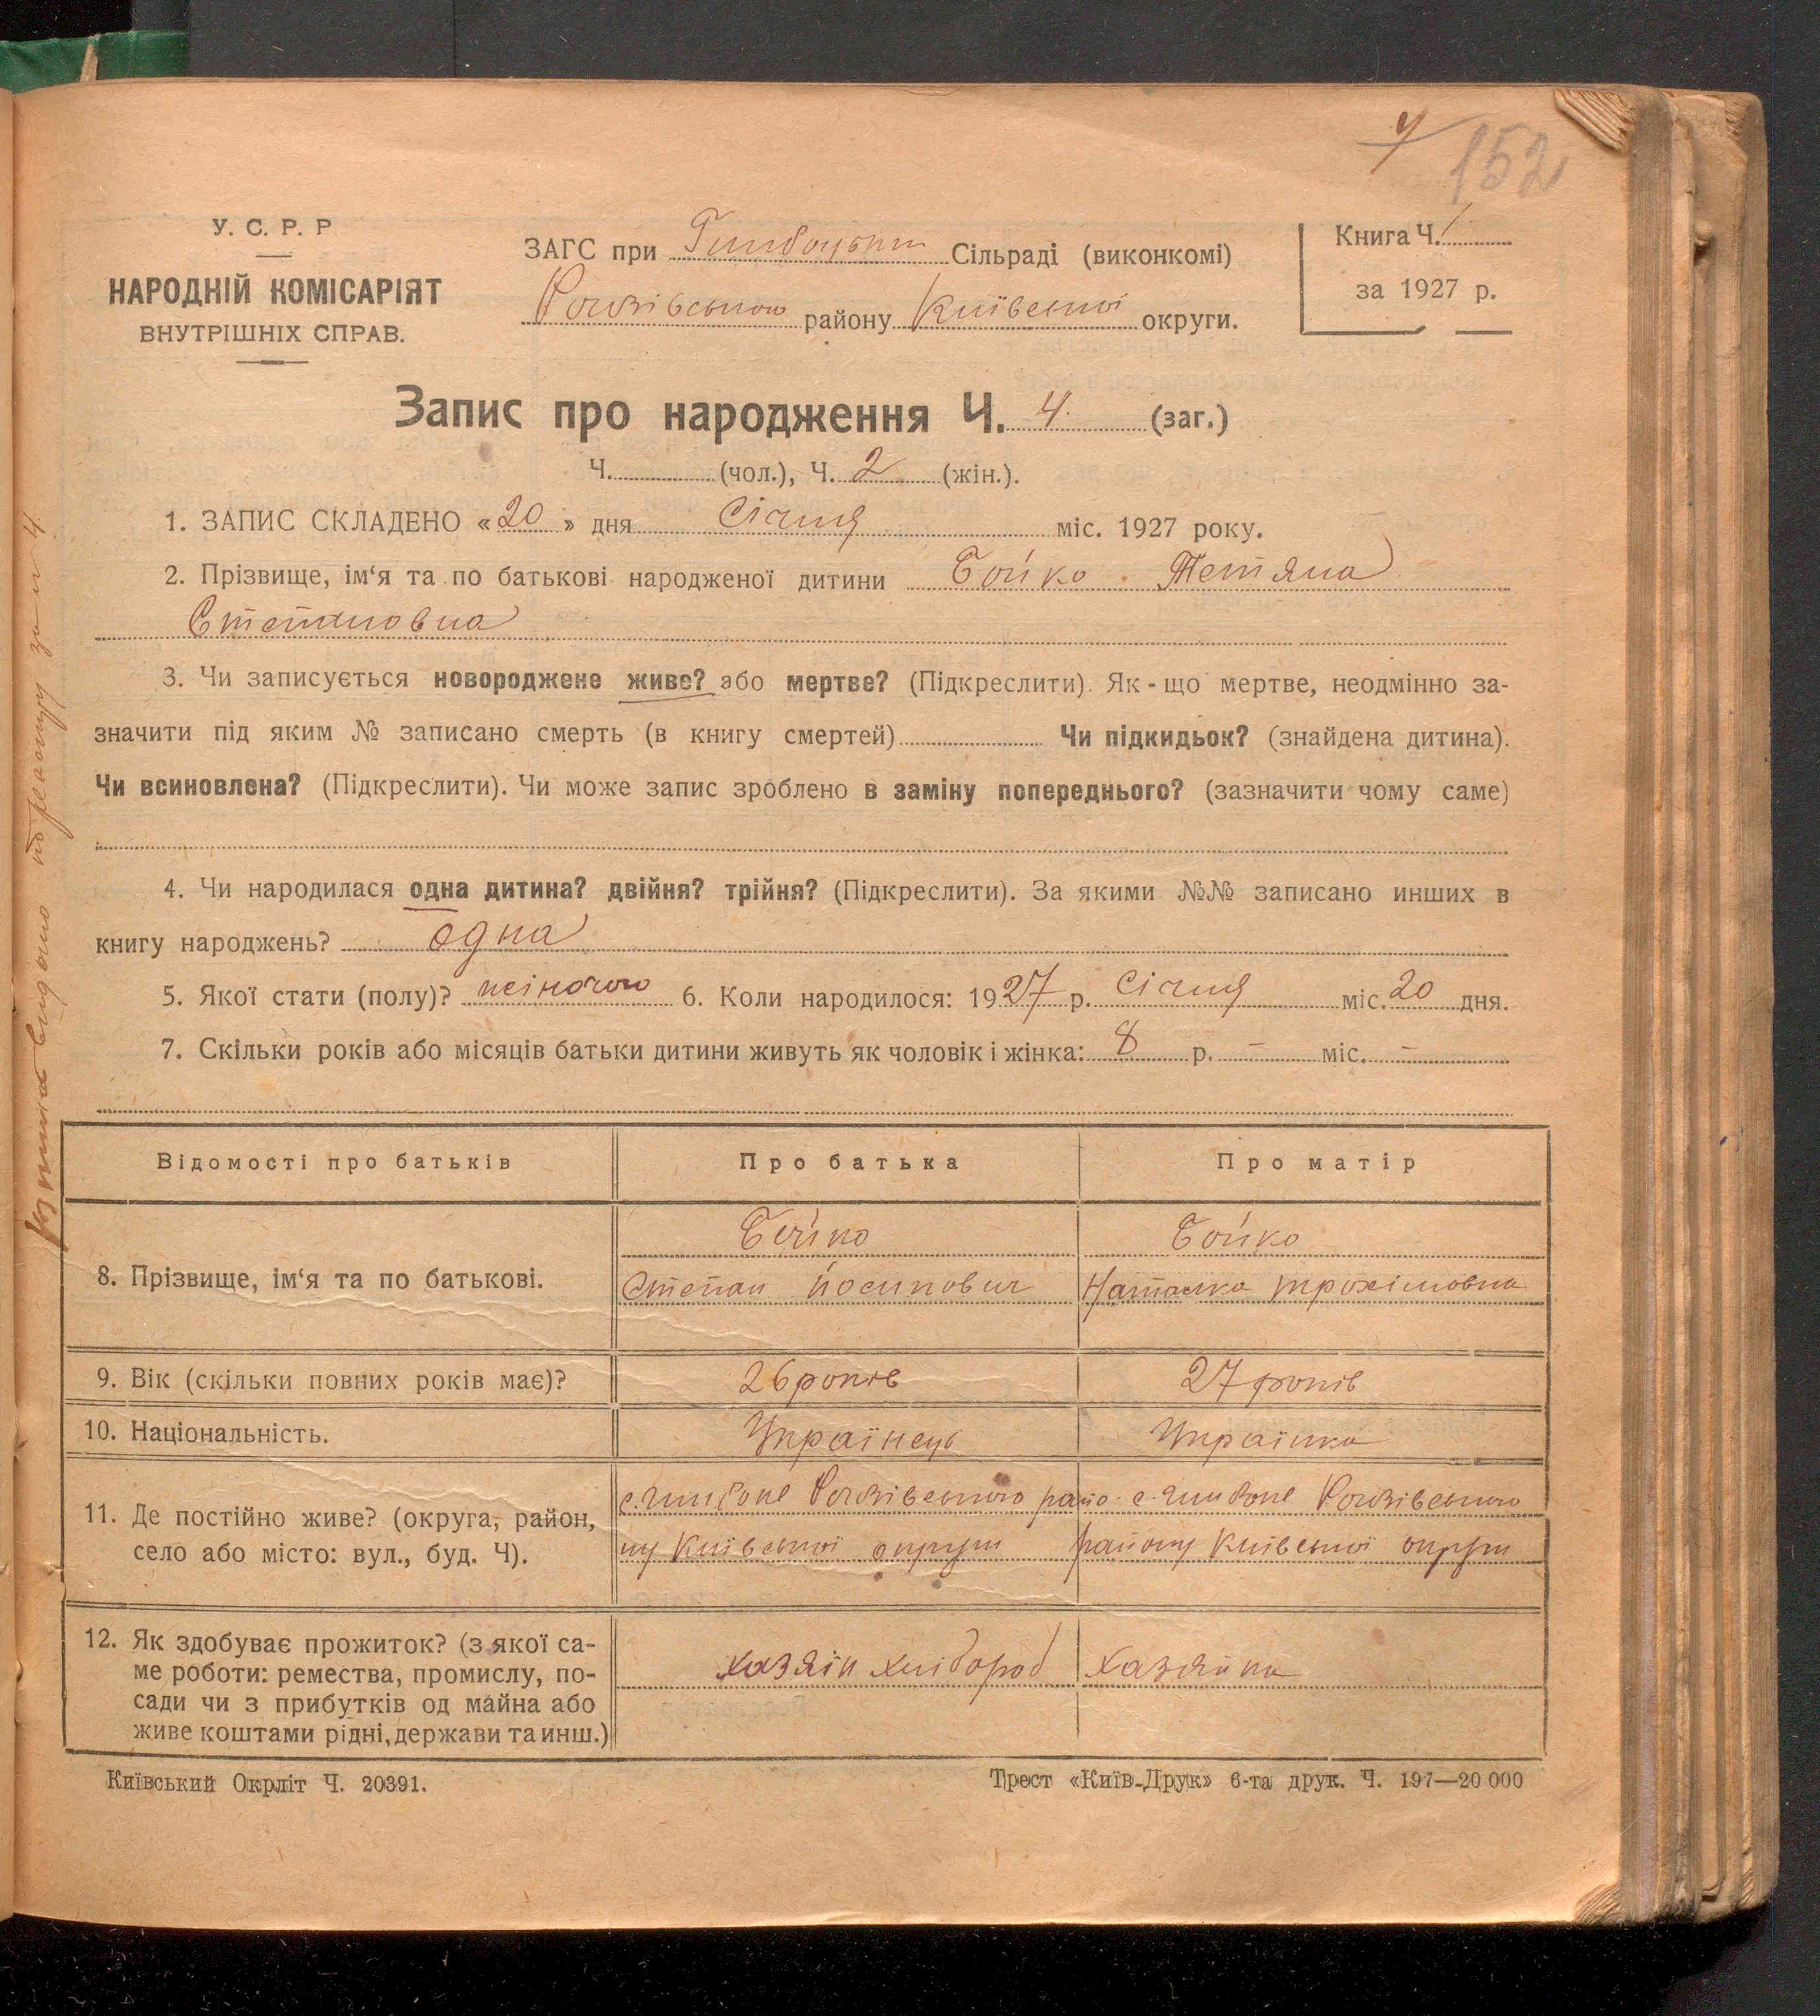 4
152
У. С. Р. Р
НАРОДНІЙ КОМІСАРІЯТ
ВНУТРІШНІХ СПРАВ.
ЗАГС при Сільраді (виконкомі)
району Київської округи.
Книга Ч. 1
за 1927 р.
Запис про народження Ч. 4. (заг.)
Ч. (чол.), Ч. 2 (жін.).
1. ЗАПИС СКЛАДЕНО «20» дня Січня міс. 1927 року.
2. Прізвище, ім‘я та по батькові народженої дитини Бойко Тетяна
Степановна
3. Чи записується новороджене живе? або мертве? (Підкреслити). Як-що мертве, неодмінно за-
значити під яким № записано смерть (в книгу смертей) Чи підкидьок? (знайдена дитина).
Чи всиновлена? (Підкреслити). Чи може запис зроблено в заміну попереднього? (зазначити чому саме)
4. Чи народилася одна дитина? двійня? трійня? (Підкреслити). За якими №№ записано инших в
книгу народжень? одна
5. Якої стати (полу)? жіночого 6. Коли народилося: 1927 р. Січня міс. 20 дня.
7. Скільки років або місяців батьки дитини живуть як чоловік і жінка: 8 р. – міс. –
Відомості про батьків Про батька Про матір
8. Прізвище, ім‘я та по батькові.
Бойко Бойко
Степан Йосипович Наталка Трохімовна
9. Вік (скільки повних років має)? 26 років 27 років
10. Національність. Українець Українка
11. Де постійно живе? (округа, район,
село або місто: вул., буд. Ч).
с. райо- с.
ну Київської округи району Київської округи
12. Як здобуває прожиток? (з якої са-
ме роботи: ремества, промислу, по-
сади чи з прибутків од майна або
живе коштами рідні, держави та инш.)
хазяїн хлібороб хазяйка
Київський Окрліт Ч. 20391.
Трест «Київ-Друк» 6-та друк. Ч. 197—20 000